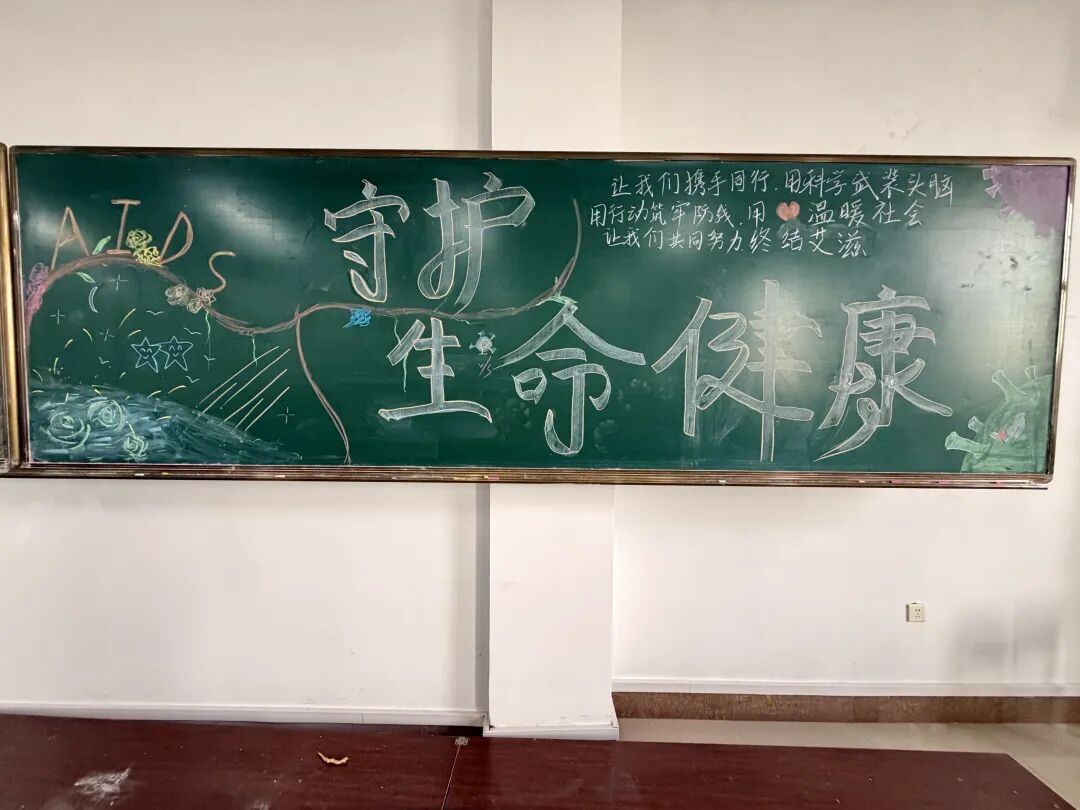 AIDS
守护
生命健康
让我们携手同行.用科学武装头脑
用行动筑牢防线.用 温暖社会
让我们共同努力终结艾滋